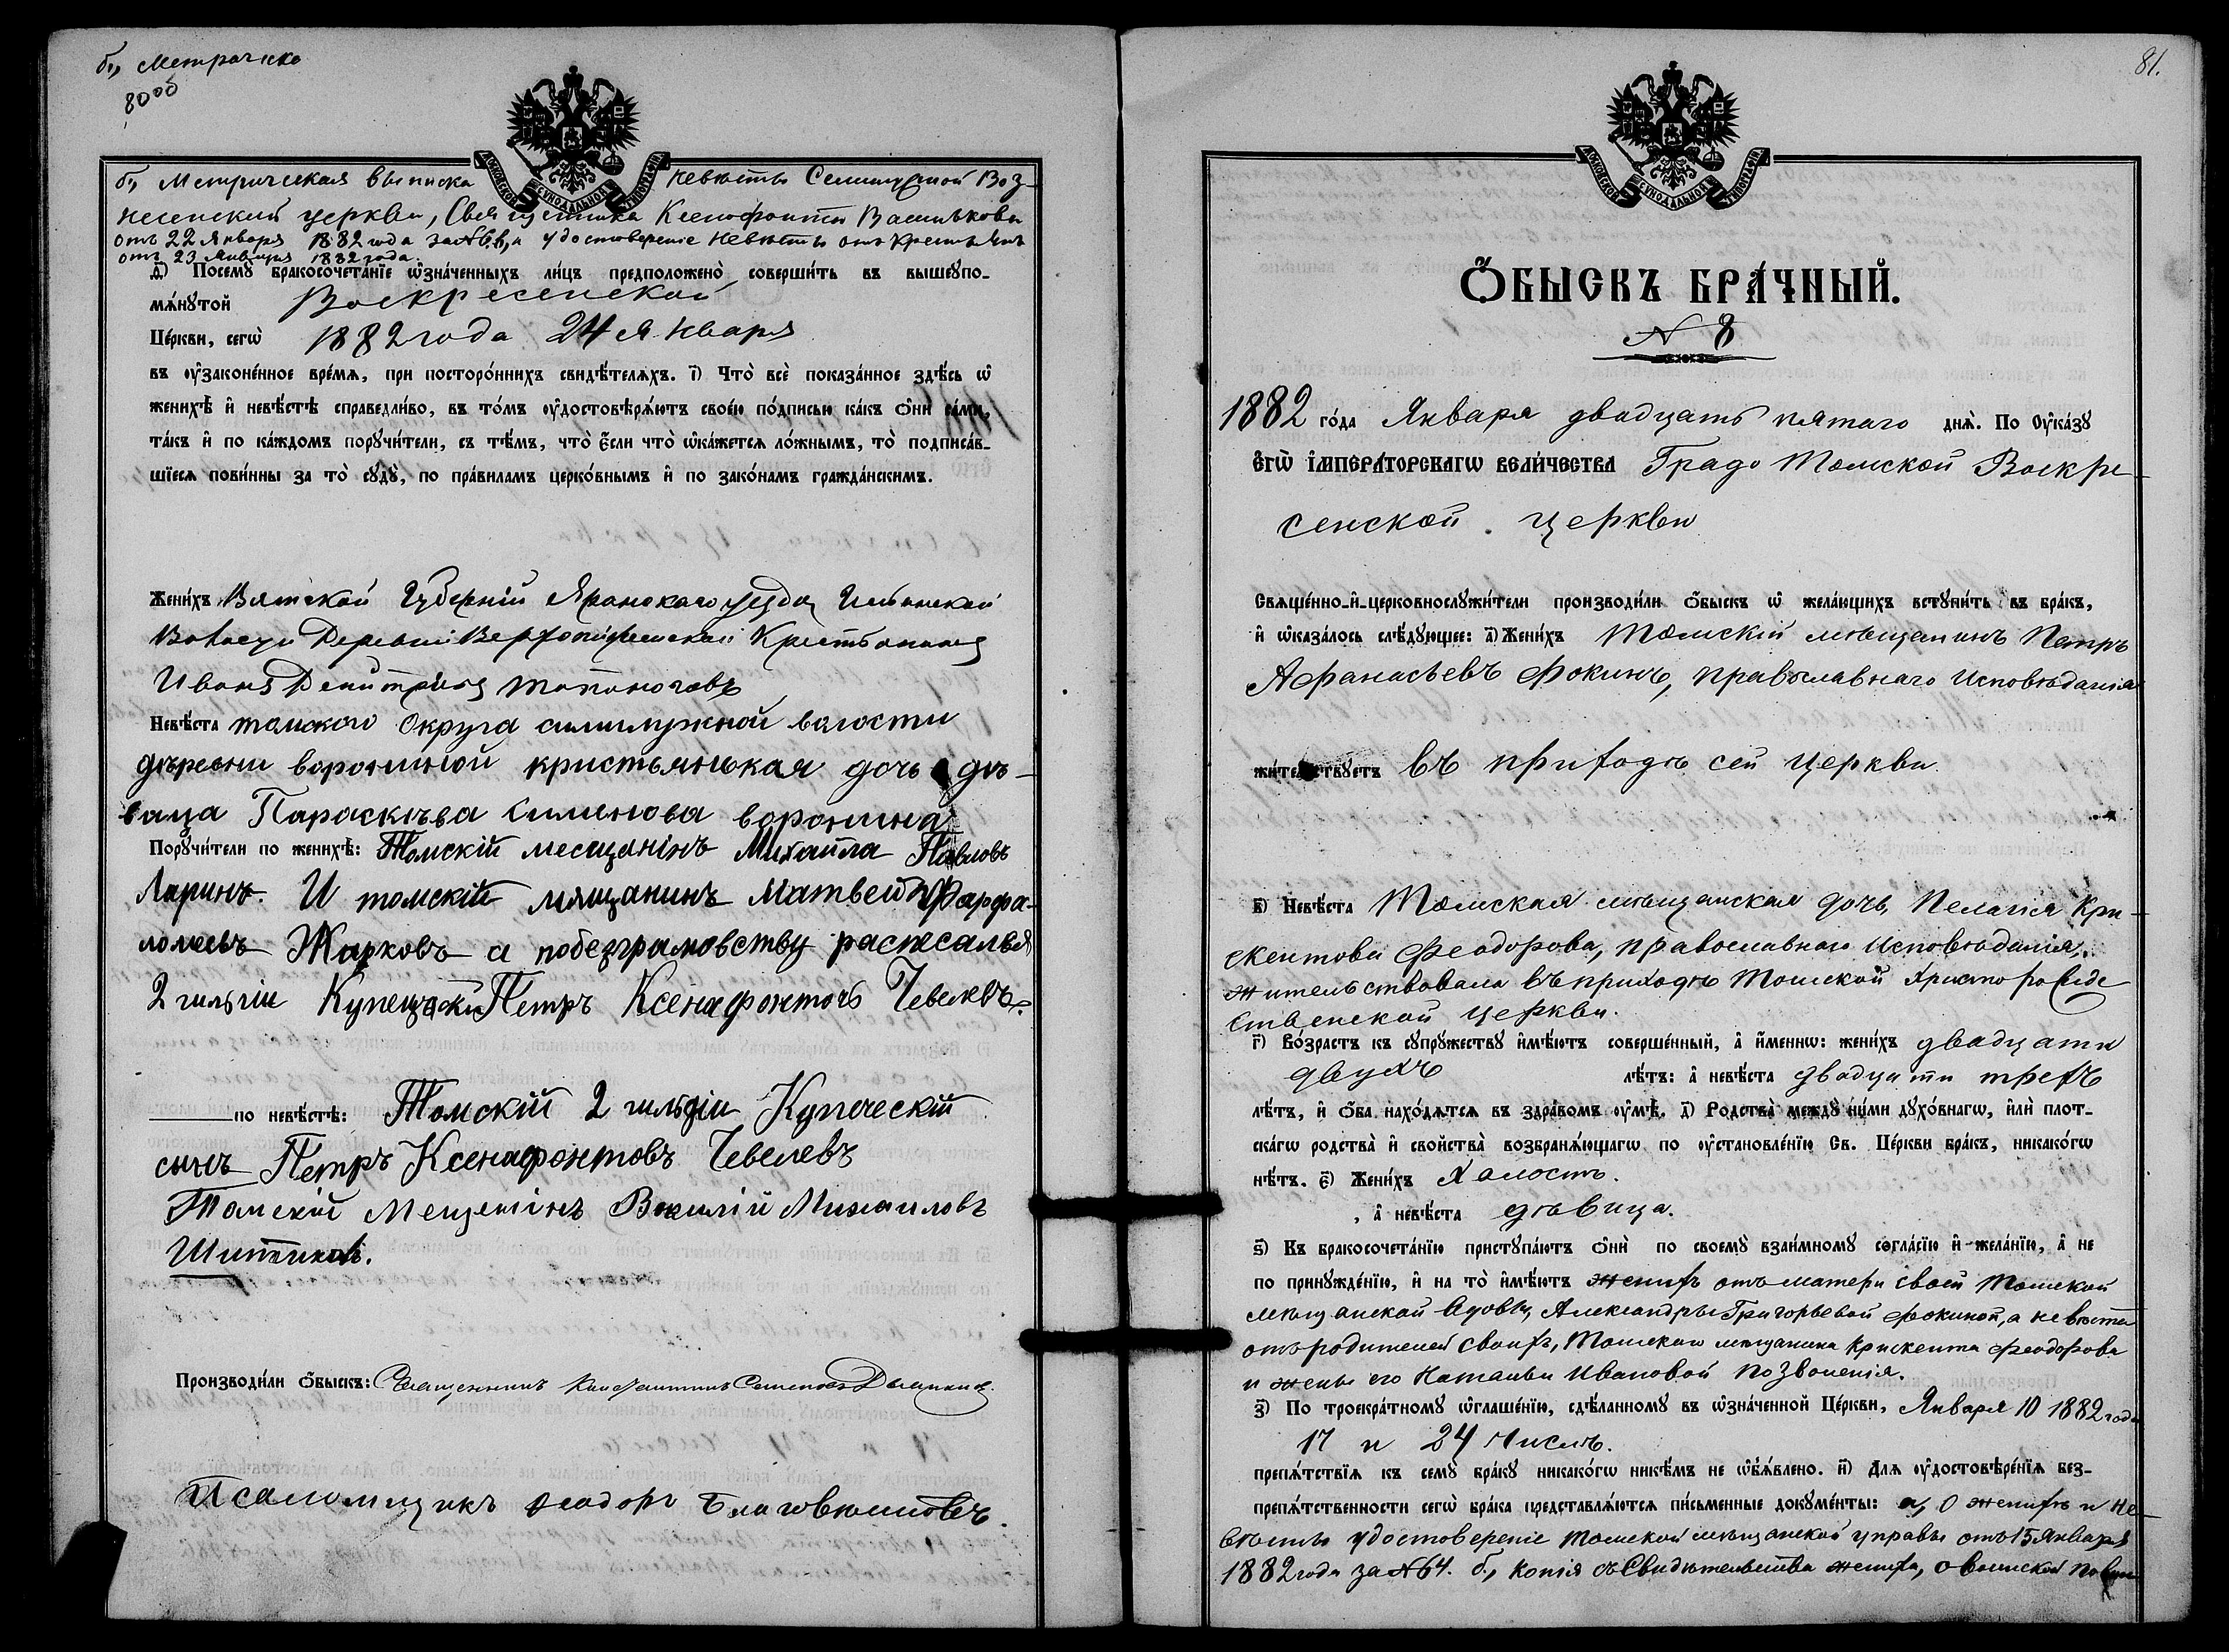 б., Метрическ
б., Метрическая выписка невесты Семилужной Воз-
несенской церкви, Священника Ксенофонта Василькова
отъ 22 Января 1882 года за № 6, и удостоверенiе невесты
отъ 23 Января 1882 года.
Д҃) Посемꙋ̀ бракосочета́нїе ѡ҆зна́ченныхъ ли́цъ предположено̀ соверши́ть въ вышеꙋпо-
мѧ́нꙋтой Воскресенской
Це́ркви, сегѡ̀ 1882 года 24 Января
въ ᲂу҆законе́нное вре́мѧ, при посторо́ннихъ свидѣ́телѧхъ. і҃) Что̀ всѐ пока́занное здѣ́сь ѡ҆
женихѣ̀ и҆ невѣ́стѣ справедли́во, въ то́мъ ᲂу҆достовѣрѧ́ютъ свое́ю по́дписью ка́къ ѻ҆нѝ са́ми,
та́къ и҆ по ка́ждомъ порꙋчи́тели, съ тѣ́мъ, что̀ є҆́сли что̀ ѡ҆ка́жетсѧ ло́жнымъ, то̀ подписа́в-
шїесѧ пови́нны за то̀ сꙋдꙋ̀, по пра́виламъ церко́внымъ и҆ по зако́намъ гражда́нскимъ.
Жени́хъ Вятской Губернiи Яранскаго уезда
Волости Деревни Крестьянинъ
Иванъ
Невѣ́ста томского округа симилужной волости
дѣревни ворониной кристьянская дочь дѣ-
вица Параскѣва Сименова воронина
Порꙋчи́тели по женихѣ̀: Томскiй месщанiнъ Михаила Павловъ
Ларинъ. И томскiй мящанинъ Матвей Фарфа-
ломевъ Жарковъ а побезграмовству расписалься
2 гильдiи Петръ Ксенафонтовъ Чевелевъ.
по невѣ́стѣ: Томскiй 2 гильдiи Купеческiй
сынъ Петръ Ксенафонтовъ Чевелевъ
Томскiй Мещенiнъ Василiй Михаиловъ
Шитиковъ.
Производи́ли ѻ҆́быскъ: Священникъ Константинъ
Псаломщикъ Феодоръ
81.
МОСКОВСКОЙ СѴНОДАЛЬНОЙ ТИПОГРАФІИ
Ѻ҆́БЫСКЪ БРА́ЧНЫЙ.
№ 8
1882 го́да Января двадцать пятаго днѧ̀. По Оу҆ка́зꙋ
є҆гѡ̀ і҆мпера́торскагѡ вели́чества Градо Томской Воскре-
сенской церкви
Сващє́нно-и҆-церковнослꙋжи́тели производи́ли ѻ҆́быскъ ѡ҆ жела́ющихъ встꙋпи́ть въ бра́къ,
и҆ ѡ҆каза́лось слѣ́дꙋющее: а҃) Жени́хъ Томскiй мѣщанинъ Петръ
Афанасьевъ Фокинъ, православнаго исповѣданiя
жи́тельствꙋетъ въ приходѣ сей церкви.
в҃) Невѣ́ста Томская мѣщанская дочь, Пелагiя Кри-
скентова Феодорова, православнаго исповѣданiя,
жительствовала въ приходѣ Томской Христорожде-
ственской церкви.
г҃) Во́зрастъ къ сꙋпрꙋ́жествꙋ и҆мѣ́ютъ соверше́нный, а҆ и҆́меннѡ: жени́хъ двадцати
двухъ лѣ́тъ: а҆ невѣ́ста двадцати трехъ
лѣ́тъ, и҆ ѻ҆́ба нахо́дѧтсѧ въ здра́вомъ ᲂу҆мѣ̀. д҃) Родства̀ междꙋ̀ ни́ми дꙋхо́внагѡ, и҆лѝ плот-
ска́гѡ родства̀ и҆ свойства̀ возбранѧ́ющагѡ по ᲂу҆становле́нїю Св. Це́ркви бра́къ, никако́гѡ
нѣ́тъ. є҃) Жени́хъ Холостъ.
, а҆ невѣ́ста дѣвица.
ѕ҃) Къ бракосочета́нїю пристꙋпа́ютъ ѻ҆нѝ по своемꙋ̀ взаи́мномꙋ согла́сїю и҆ жела́нїю, а҆ не
по принꙋжде́нїю, и҆ на то̀ и҆мѣ́ютъ женихъ отъ матери своей Томской
мѣщанской вдовы, Александры Григорьевой Фокиной, а невѣста
отъ родителей своихъ, Томскаго мѣщанина Крискента Феодорова
и жены его Натальи Ивановой позволенiя.
з҃) По троекра́тномꙋ ѡ҆глаше́нїю, сдѣ́ланномꙋ въ ѡ҆зна́ченной Це́ркви, Января 10 1882 года
17 и 24 чиселъ.
препѧ́тствїѧ къ семꙋ̀ бра́кꙋ никако́гѡ никѣ́мъ не ѡ҆б̾ѧ́влено. и҃) Длѧ ᲂу҆достовѣре́нїѧ без-
препѧ́тственности сегѡ̀ бра́ка представлѧ́ютсѧ пи́сьменные докꙋме́нты: а, о женихѣ и не-
вѣстѣ удостоверенiе Томской мѣщанской управы отъ 15 Января
1882 года за № 64. б., копiя съ Свидѣтельства жениха, о воинской повин